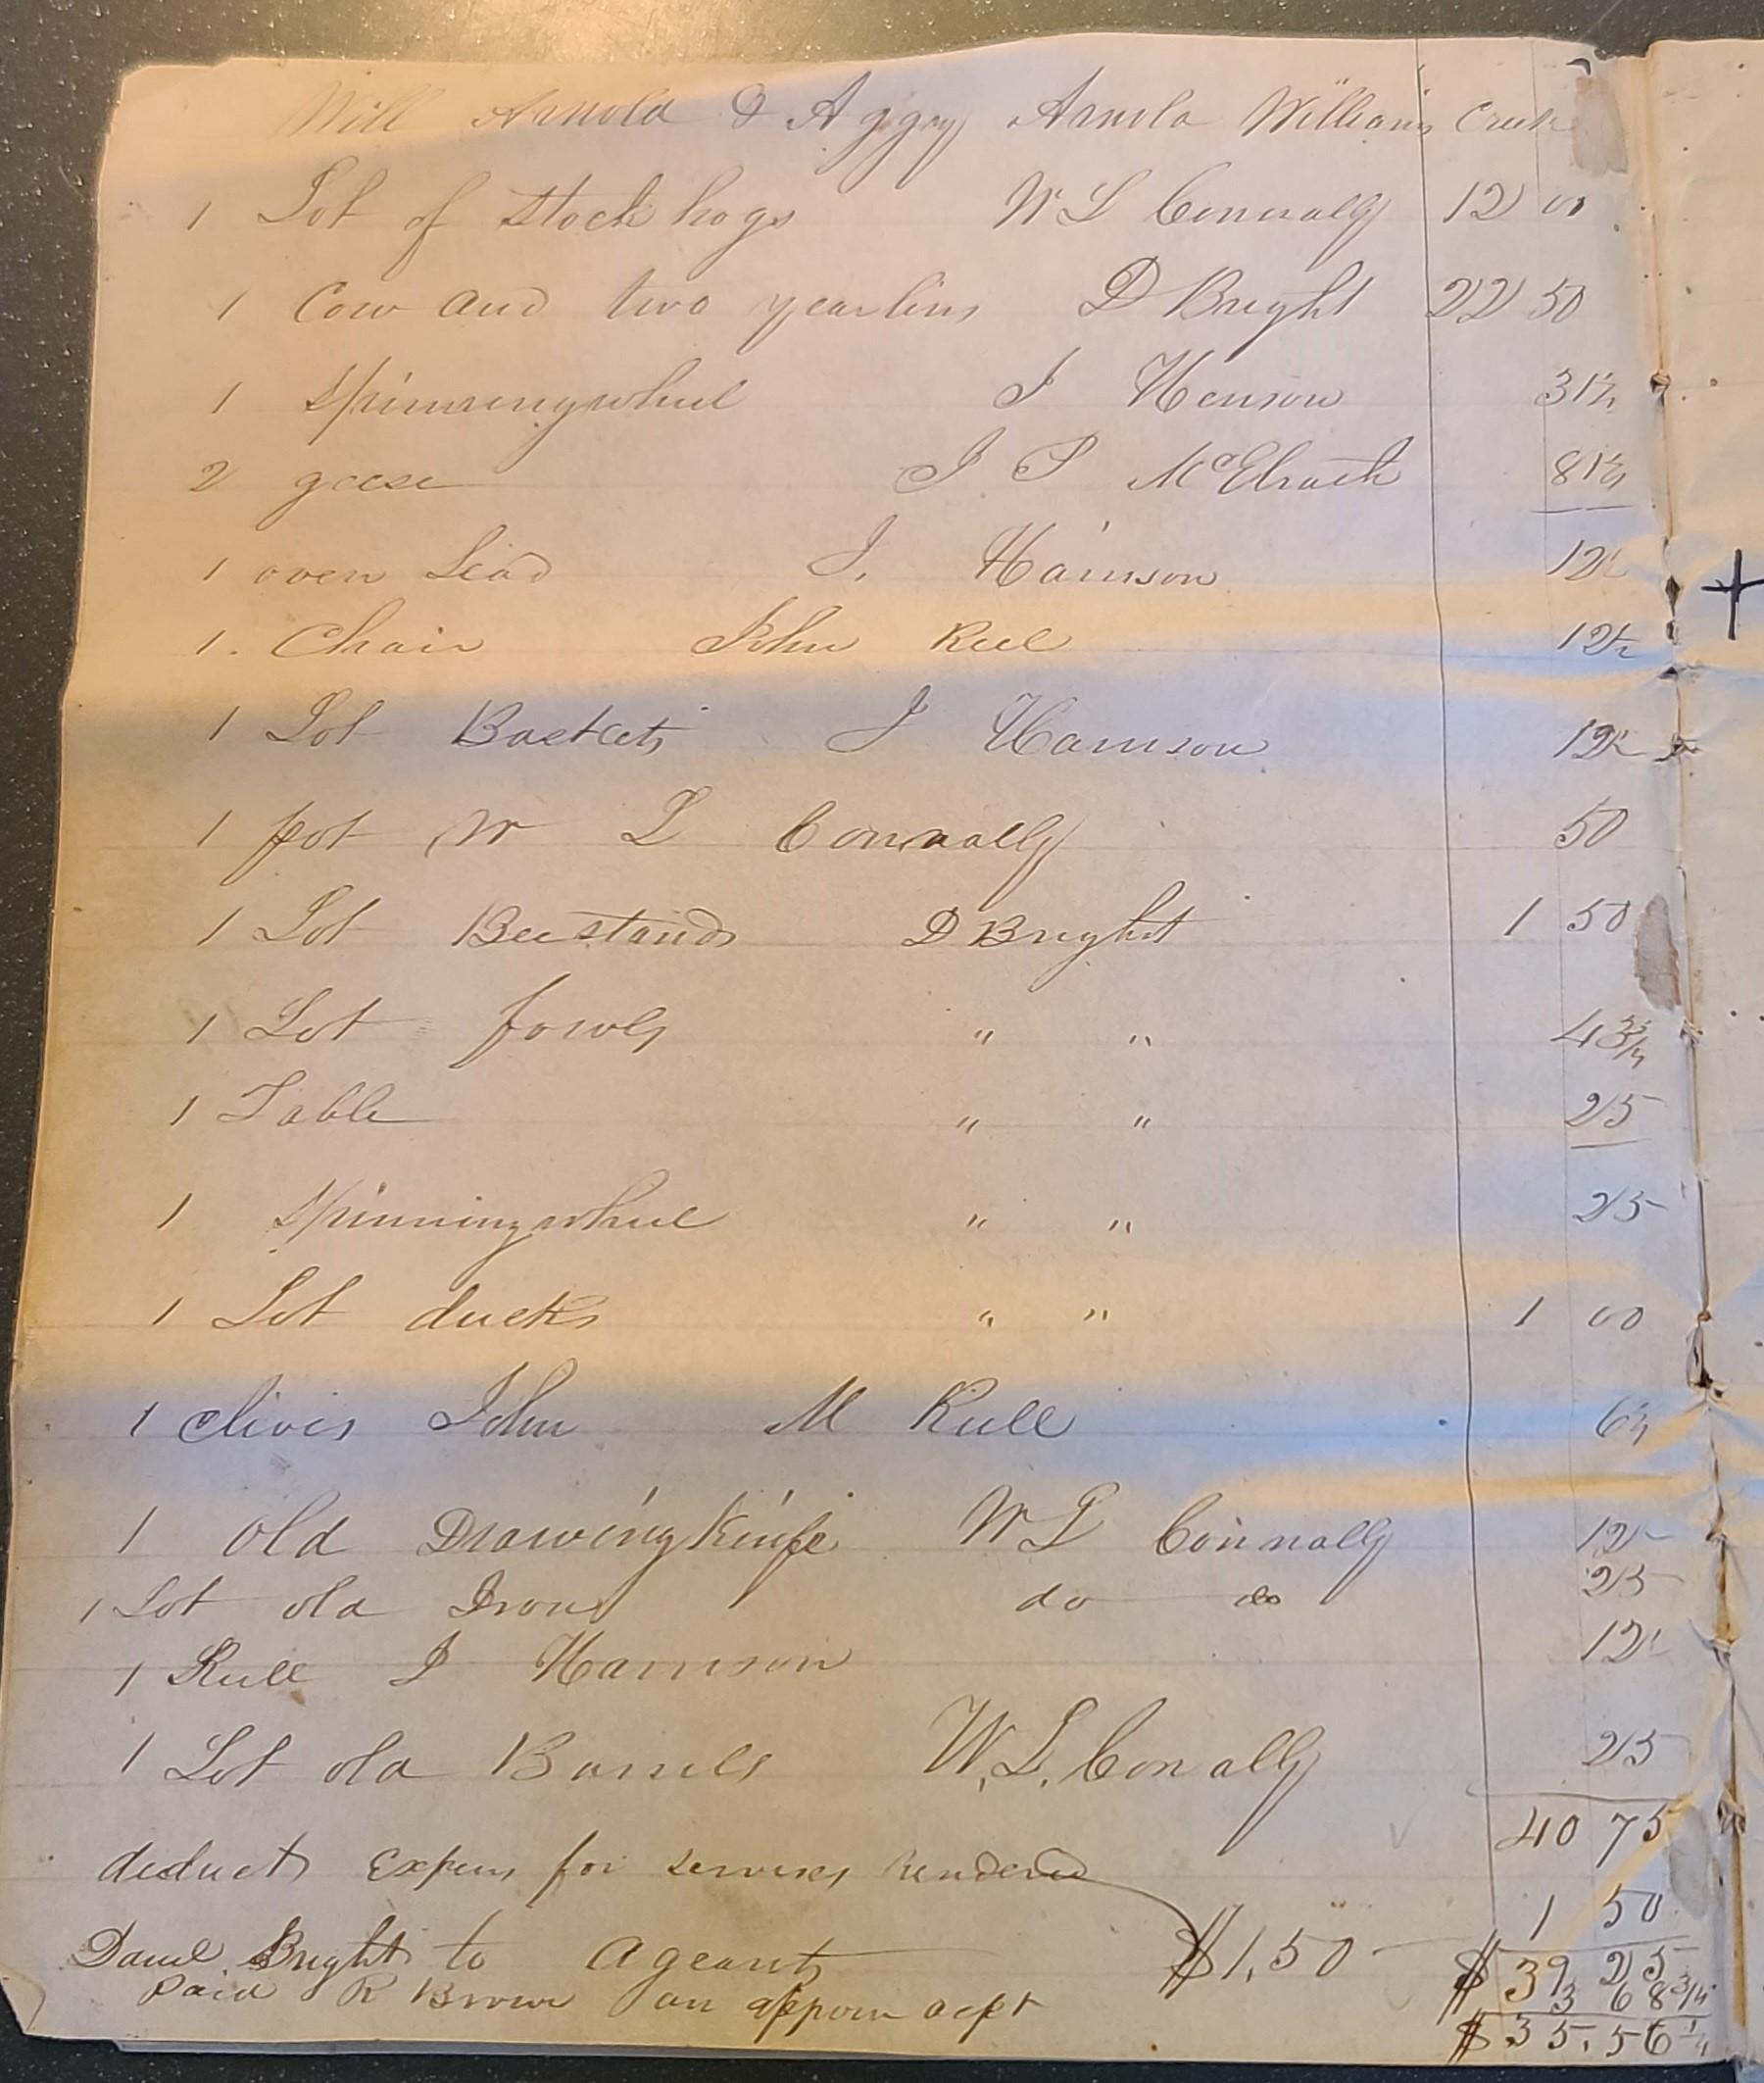 Will Arnold & Aggy Arnold Williams Creek
1 Lot of Stock hogs W L Connally 12 00
1 Cow and two yearlins D Bright 22 50
1 Spinningwheel J Henson 31½
2 geese J P McElrath 81½
1 oven Lead J. Harrison 12½
1. Chair John Reel 12½
1 Lot Baskets J Harrison 12½
1 pot W L Connally 50
1 Lot Beestands D Bright 1 50
1 Lot fowls " " 43¾
1 Table " " 25
1 Spinningwheel " " 25
1 Lot ducks " " 1 00
1 clivis John M Rull 6¼
1 old Drawing Knife W L Connally 12
1 Lot old Irons do do 25
1 Rull J Harrison 12½
1 Lot old Barrels W. L. Conally 25
40 75
deduct Expens for servises rendered 1 50
Daniel Bright to Ageant $1,50 $ 39 25
Paid R Brown an apporn acpt $ 3 68 ¾
$ 35.56 ¼